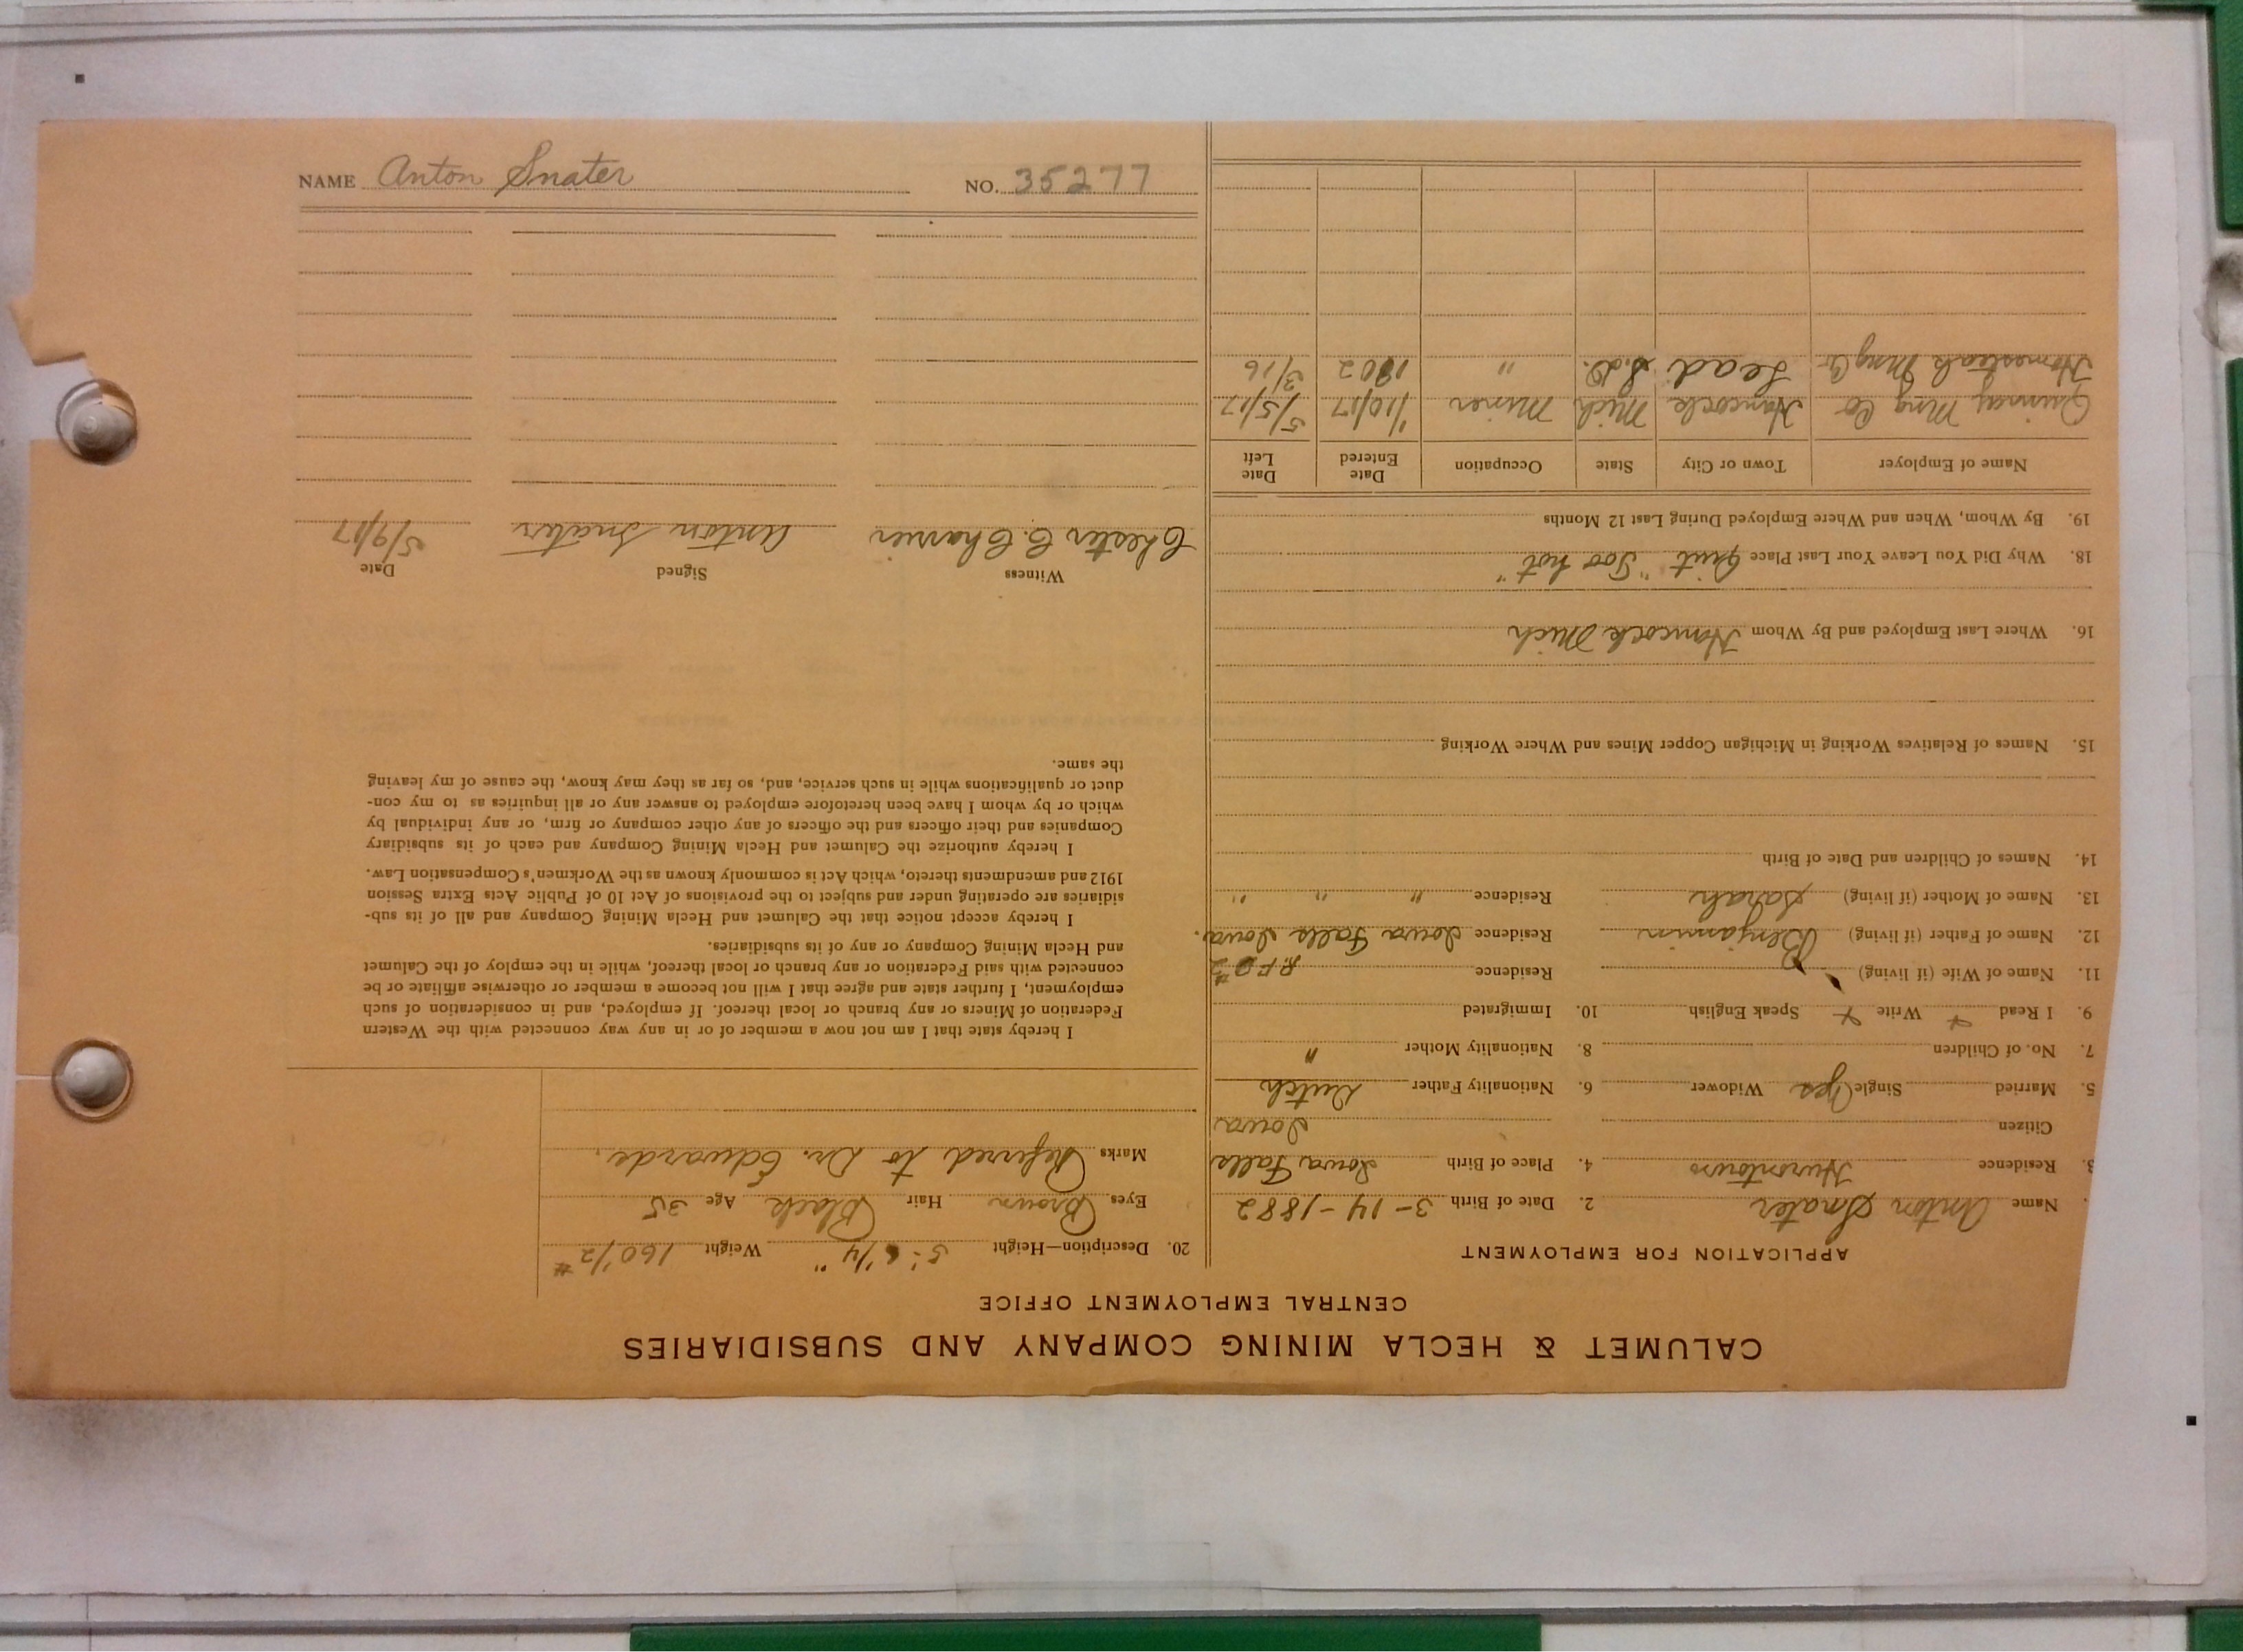 NAME Anton Snater NO. 35277
CALUMET & HECLA MINING COMPANY AND SUBSIDIARIES
CENTRAL EMPLOYMENT OFFICE
APPLICATION FOR EMPLOYMENT
. Name Anton Snater 2. Date of Birth 3-14-1882
3. Residence Hurontown 4. Place of Birth Iowa Falls
Citizen Iowa
5. Married Single Yes Widower 6. Nationality Father Dutch
7. No. of Children 8. Nationality Mother "
9. I Read + Write + Speak English 10. Immigrated
11. Name of Wife (if living) Residence R.F.D #2
12. Name of Father (if living) Benjamin Residence Iowa Falls Iowa.
13. Name of Mother (if living) Sarah Residence " " "
14. Names of Children and Date of Birth
15. Names of Relatives Working in Michigan Copper Mines and Where Working
16. Where Last Employed and By Whom Hancock Mich
18. Why Did You Leave Your Last Place Quit "Too hot"
19. By Whom, When and Where Employed During Last 12 Months
Name of Employer Town or City State Occupation Date Entered Date Left
Quincy Mng Co Hancock Mich Miner 1/10/17 5/5/17
Homestead Mng Co Lead S.D. " 1902 3/16
20. Description—Height 5' 6 1/4" Weight 160 1/2 #
Eyes Brown Hair Black Age 35
Marks Referred to Dr. Edwards.
I hereby state that I am not now a member of or in any way connected with the Western
Federation of Miners or any branch or local thereof. If employed, and in consideration of such
employment, I further state and agree that I will not become a member or otherwise affiliate or be
connected with said Federation or any branch or local thereof, while in the employ of the Calumet
and Hecla Mining Company or any of its subsidiaries.
I hereby accept notice that the Calumet and Hecla Mining Company and all of its sub-
sidiaries are operating under and subject to the provisions of Act 10 of Public Acts Extra Session
1912 and amendments thereto, which Act is commonly known as the Workmen's Compensation Law.
I hereby authorize the Calumet and Hecla Mining Company and each of its subsidiary
Companies and their officers and the officers of any other company or firm, or any individual by
which or by whom I have been heretofore employed to answer any or all inquiries as to my con-
duct or qualifications while in such service, and, so far as they may know, the cause of my leaving
the same.
Witness Signed Date
Chester C. Anton Snater 5/9/17